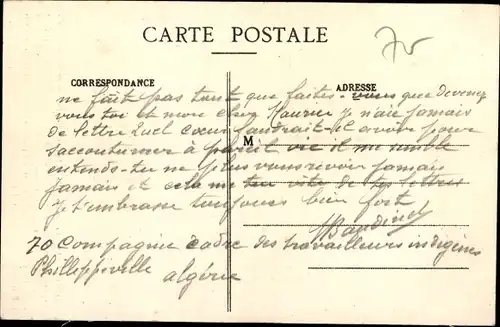 CARTE POSTALE
70
CORRESPONDANCE
ADRESSE
ne fait pas tant que faites-vous que devenez
vous toi et mon cher Maurice Je n'aie jamais
de lettre quel cœur faudrait-il avoir pour
M
saccoutumer à pareil vie il me semble
entends-tu ne plus vous revoir jamais
jamais et cela me vite de tes lettres
Je t'embrasse toujours bien fort
70 Compagnie Cadre des travailleurs indigènes
Philleppeville algérie